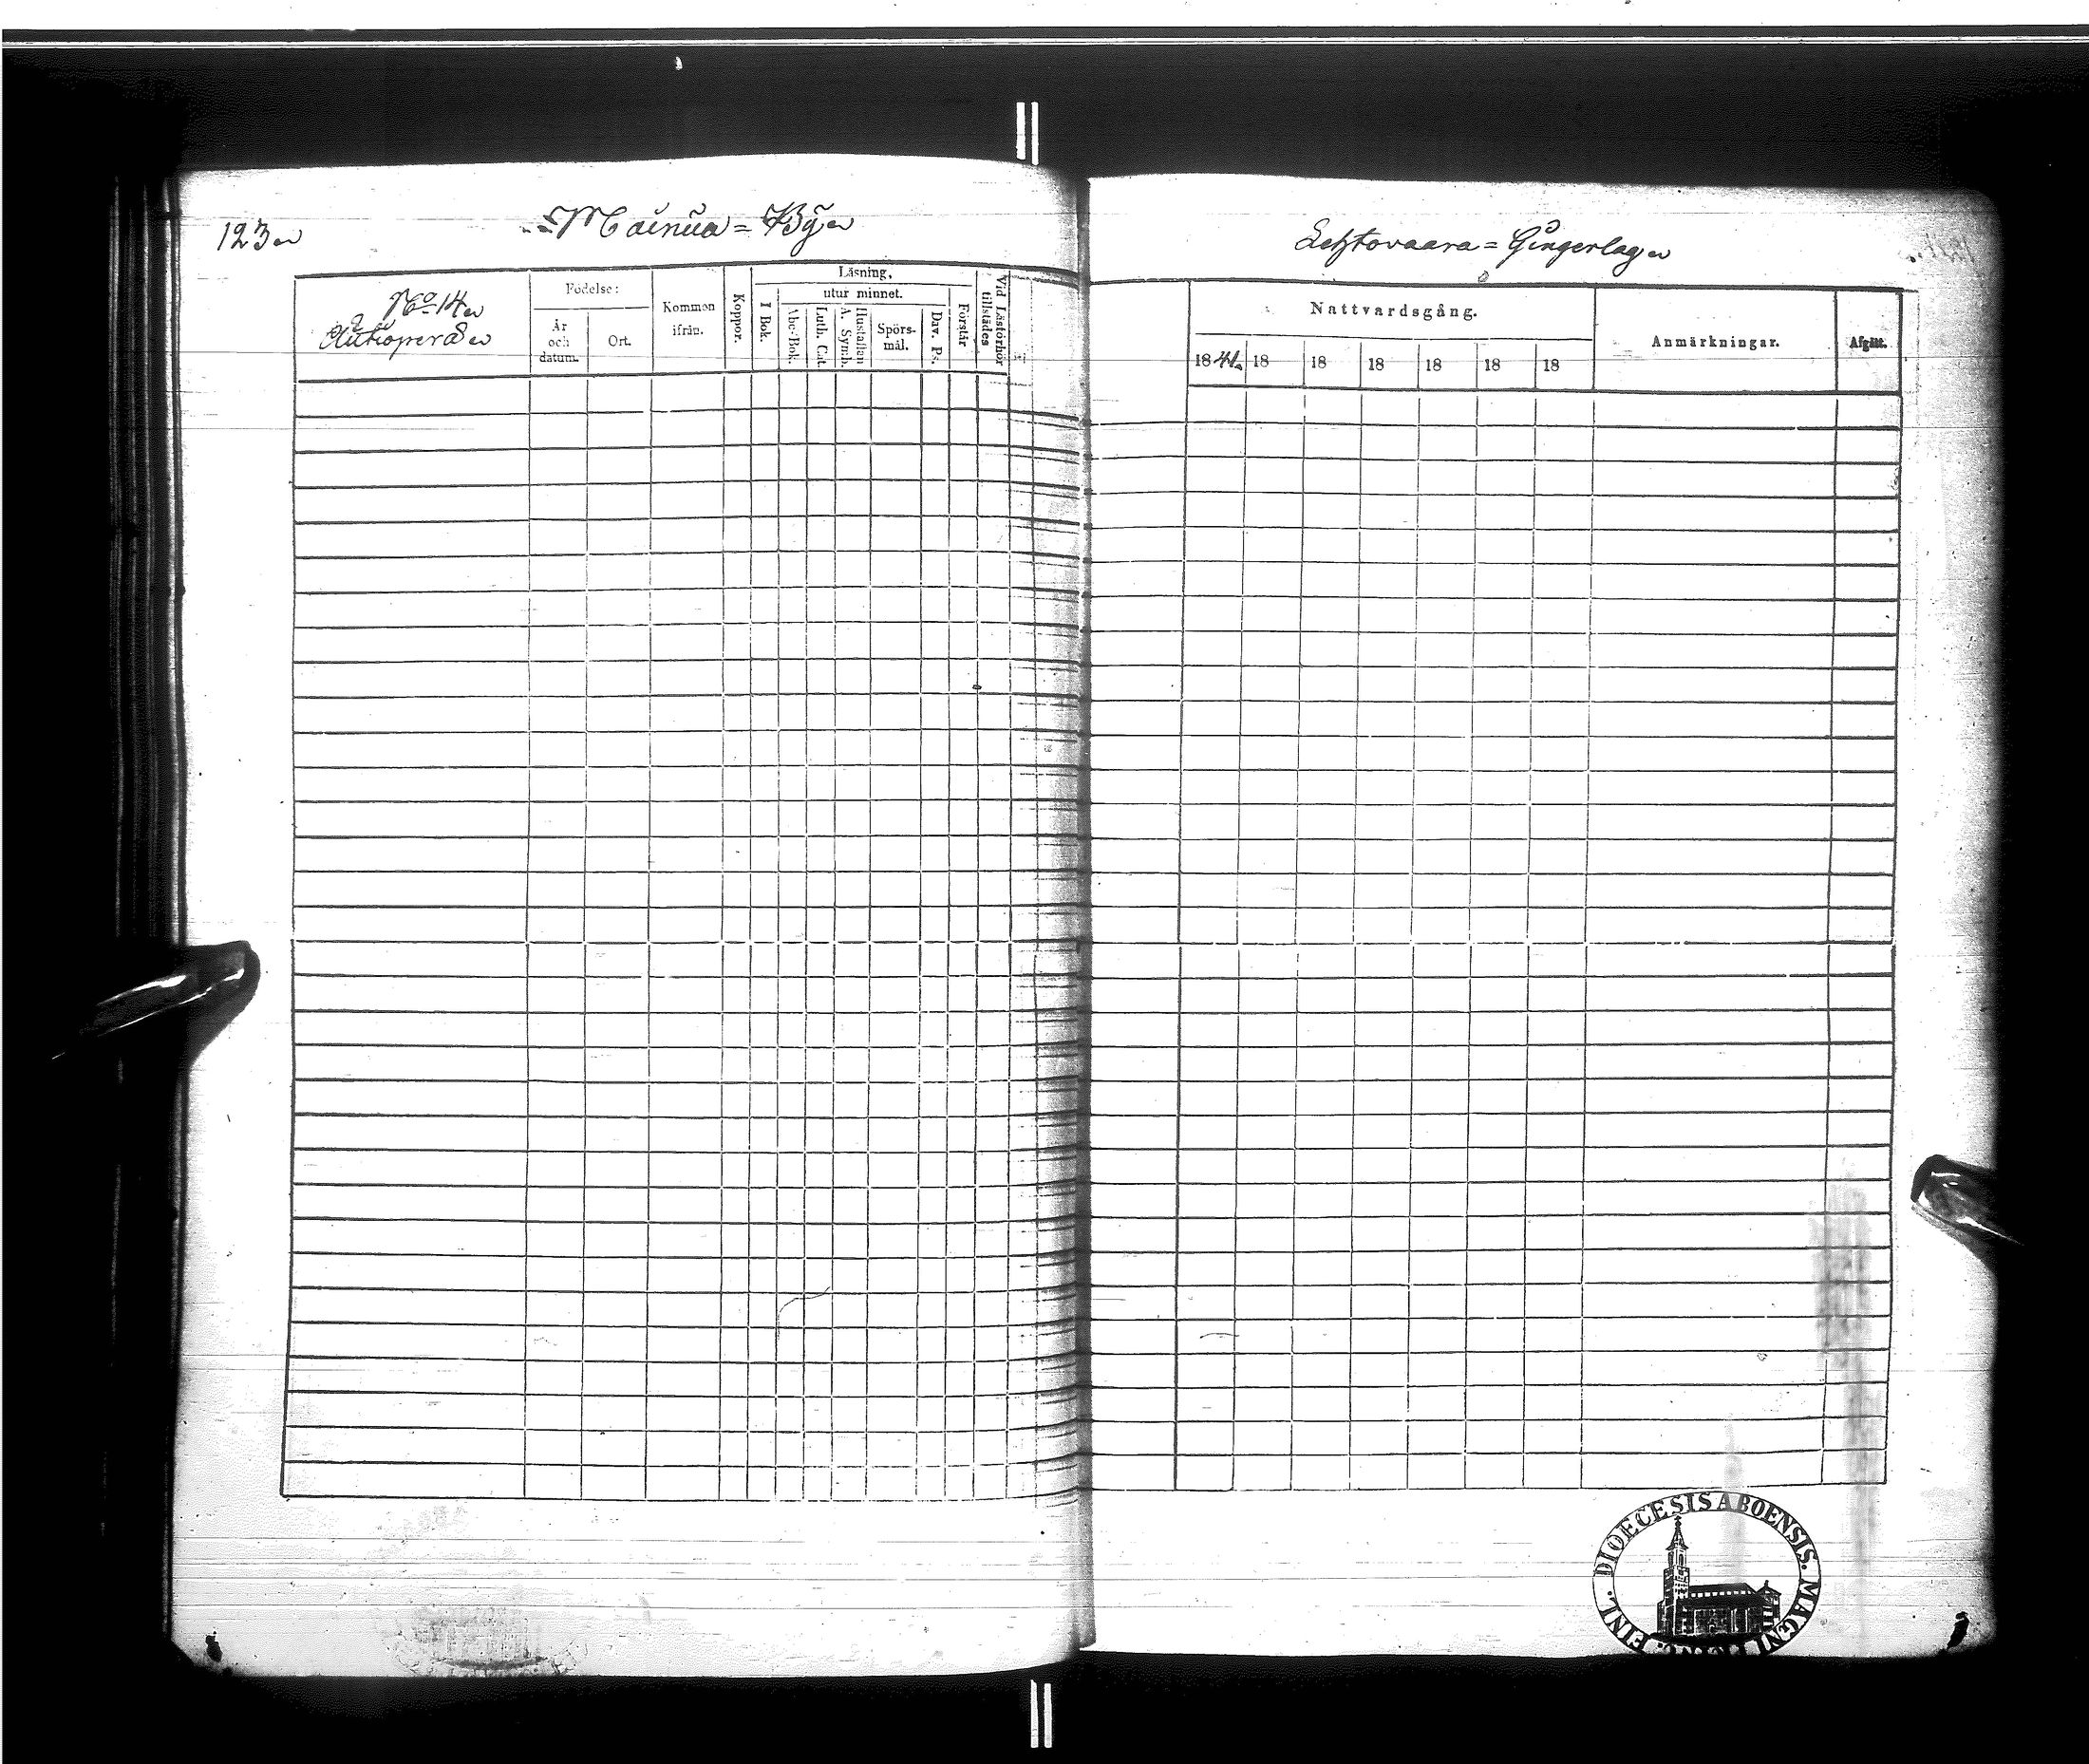 123
Mainua = By
No 14
Autioperä
Födelse:
År och datum.
Ort.
Kommen ifrån.
Koppor.
Läsning,
I Bok.
utur minnet.
Abc-Bok.
Luth. Cat.
Hustaflan A. Symb.
Spörs-mål.
Dav. Ps.
Förstår
Vid Läsförhör tillstädes
Lehtovaara = Gingerlag
Nattvardsgång.
1841.
18
18
18
18
18
18
Anmärkningar.
Afgått.
DIOECESIS ABOENSIS. MAGNI FINL.